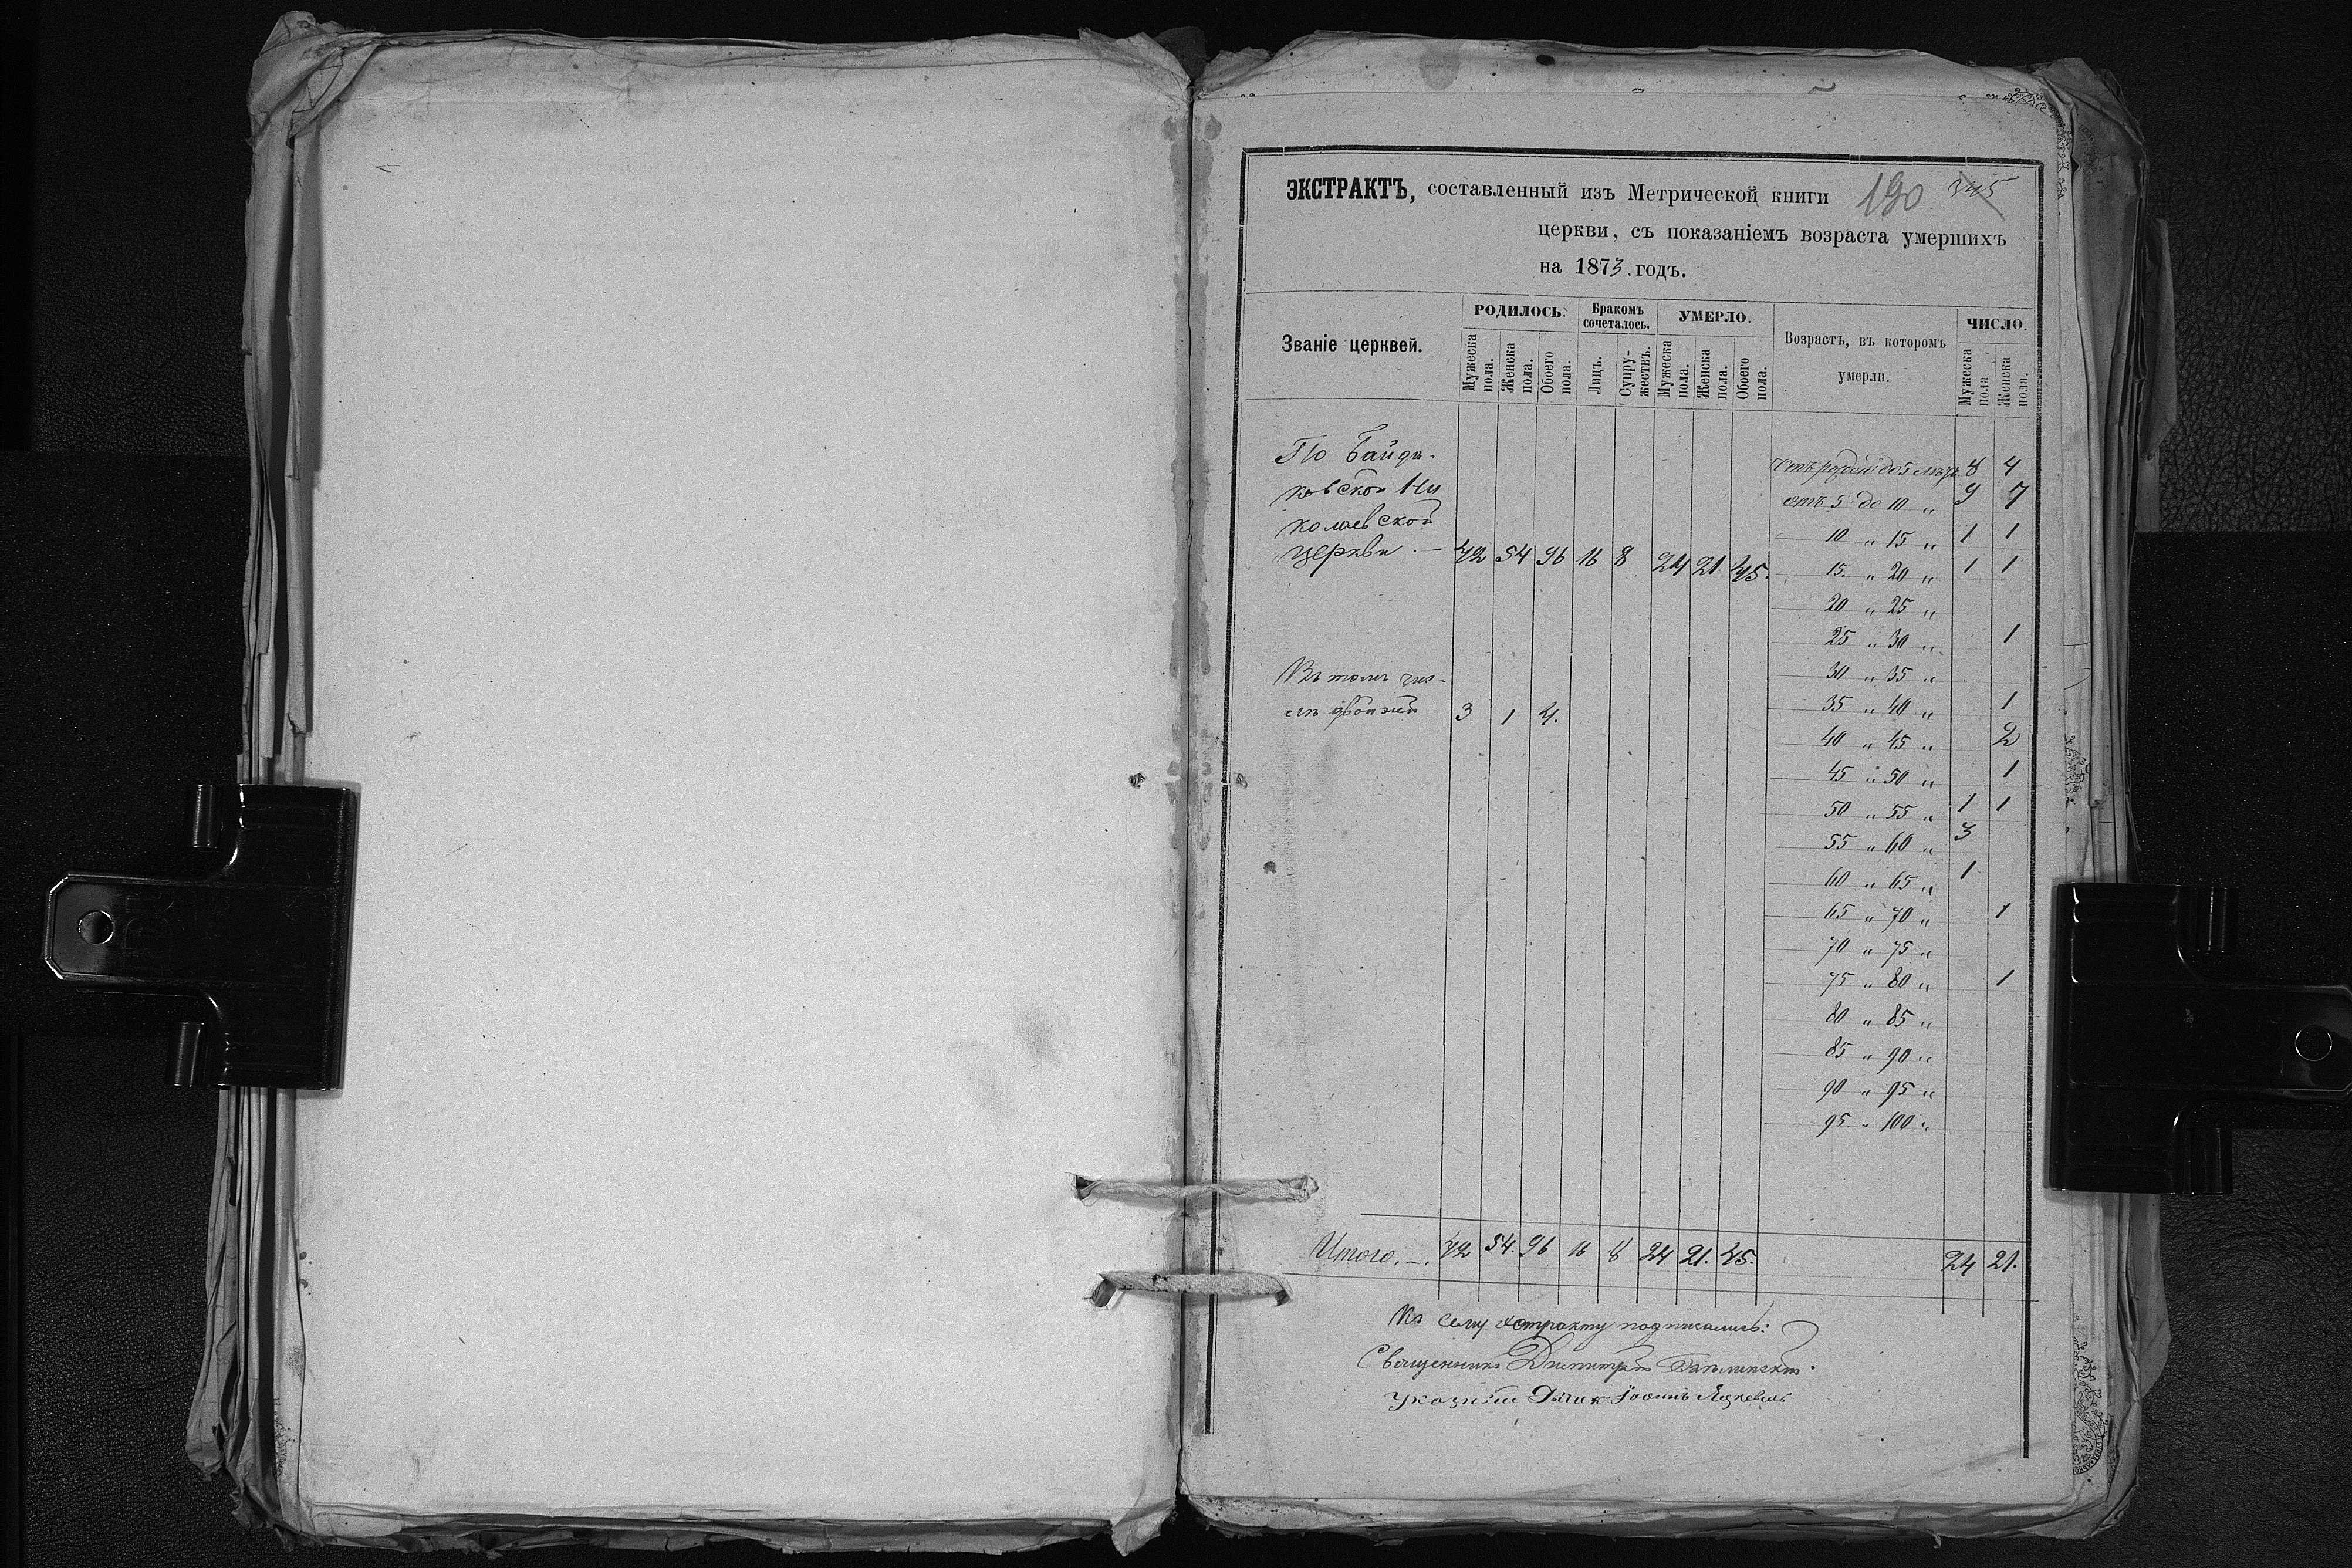 ЭКСТРАКТЪ, составленный изъ Метрической книги 190 345
церкви, съ показаніемъ возраста умершихъ
на 1873. годъ.
Званіе церквей.
РОДИЛОСЬ.
Мужеска пола.
Женска пола.
Обоего пола.
Бракомъ сочеталось.
Лицъ.
Супружествъ.
УМЕРЛО.
Мужеска пола.
Женска пола.
Обоего пола.
Возрастъ, въ которомъ
умерли.
ЧИСЛО.
Мужеска пола.
Женска пола.
По Байда-
ковской Ни
колаевской
церкви. — 42 54 96 16 8 24 21. 45.
Въ томъ чис-
лѣ двойней 3 1 4.
до 5 8 4
отъ 5 до 10 „ 9 7
10 „ 15 „ 1 1
15. „ 20 „ 1 1
20 „ 25 „
25 „ 30 „ 1
30 „ 35 „
35 „ 40 „ 1
40 „ 45 „ 2
45 „ 50 „ 1
50 „ 55 „ 1 1
55 „ 60 „ 3
60 „ 65 „ 1
65 „ 70 „ 1
70 „ 75 „
75 „ 80 „ 1
80 „ 85 „
85 „ 90 „
90 „ 95 „
95. „ 100 „
Итого. —. 42 54. 96 16 8 24 21. 45. 24 21.
Къ сему экстракту подписались:
Священникъ Димитрій
Указный Дьячекъ Іоаннъ